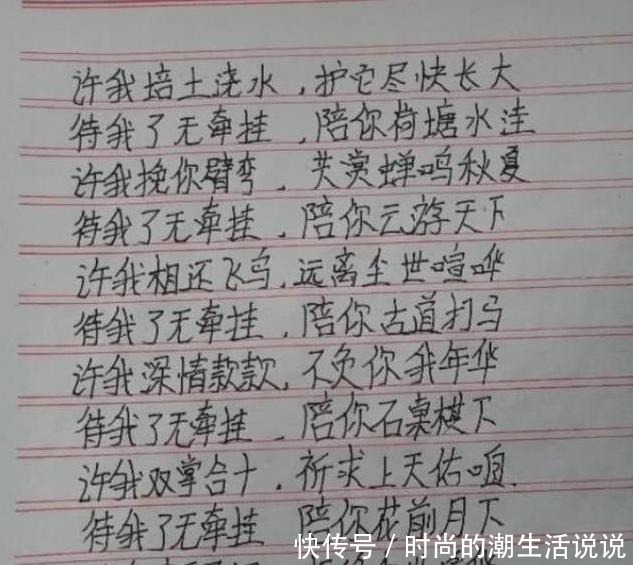 许我培土浇水，护它尽快长大
待我了无牵挂，陪你荷塘水洼
许我挽你臂弯，共赏蝉鸣秋夏
待我了无牵挂，陪你云游天下
许我相还飞鸟，远离尘世喧哗
待我了无牵挂，陪你古道打马
许我深情款款，不负你我年华
待我了无牵挂，陪你石桌棋下
许我双掌合十，祈求上天佑咱.
待我了无牵挂 陪你花前月下
快传号／时尚的潮生活说说